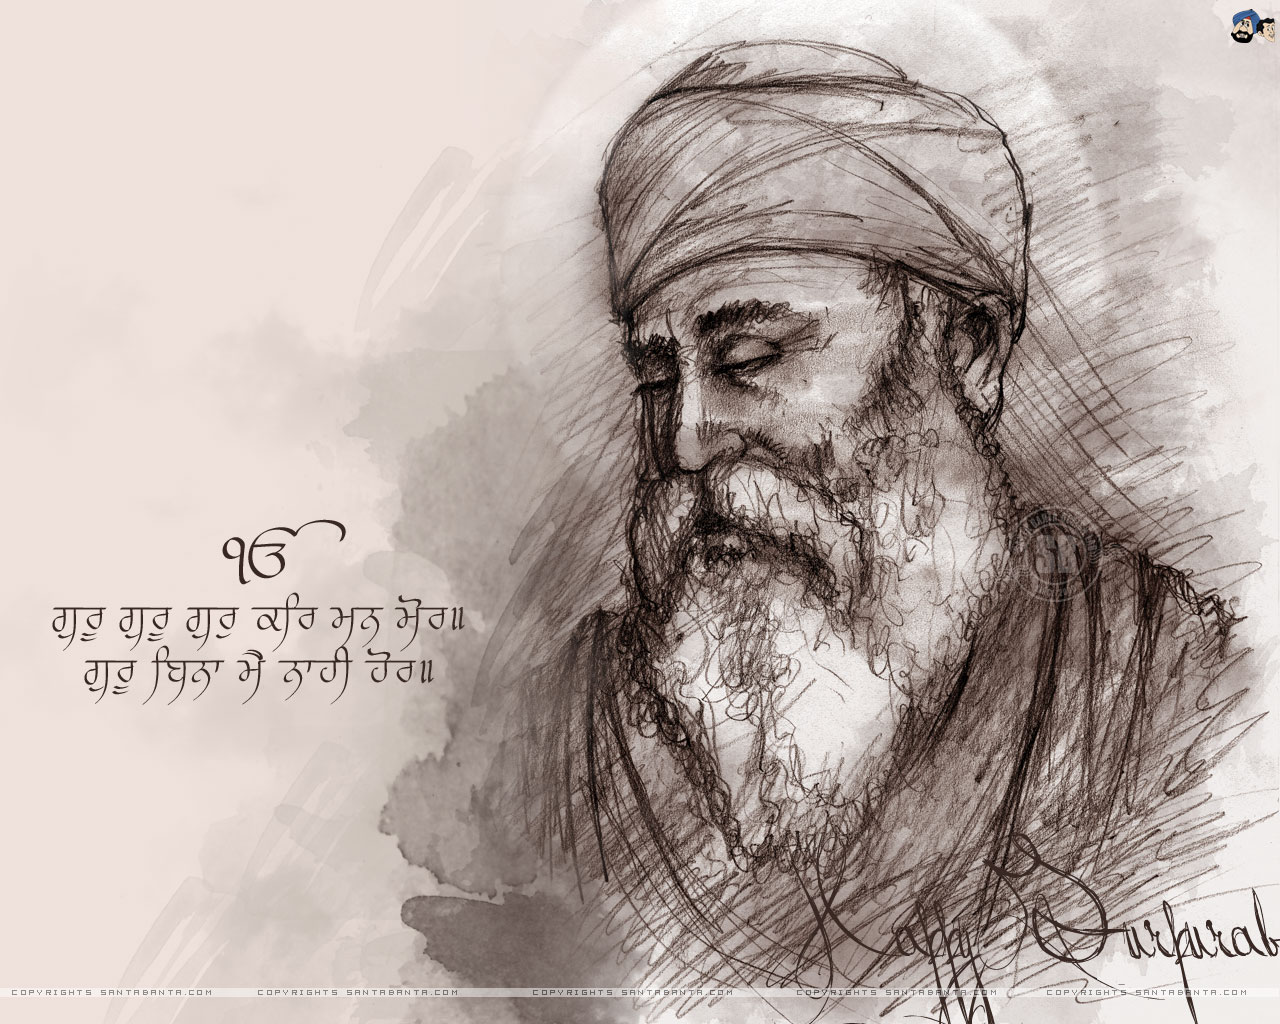 ੴ
ਗੁਰੂ ਗੁਰੂ ਗੁਰੁ ਕਰਿ ਮਨ ਮੋਰ॥
ਗੁਰੂ ਬਿਨਾ ਮੈ ਨਾਹੀ ਹੋਰ॥
Happy Gurpurab
COPYRIGHTS SANTABANTA.COM COPYRIGHTS SANTABANTA.COM COPYRIGHTS SANTABANTA.COM COPYRIGHTS SANTABANTA.COM COPYRIGHTS SANTABANTA.COM